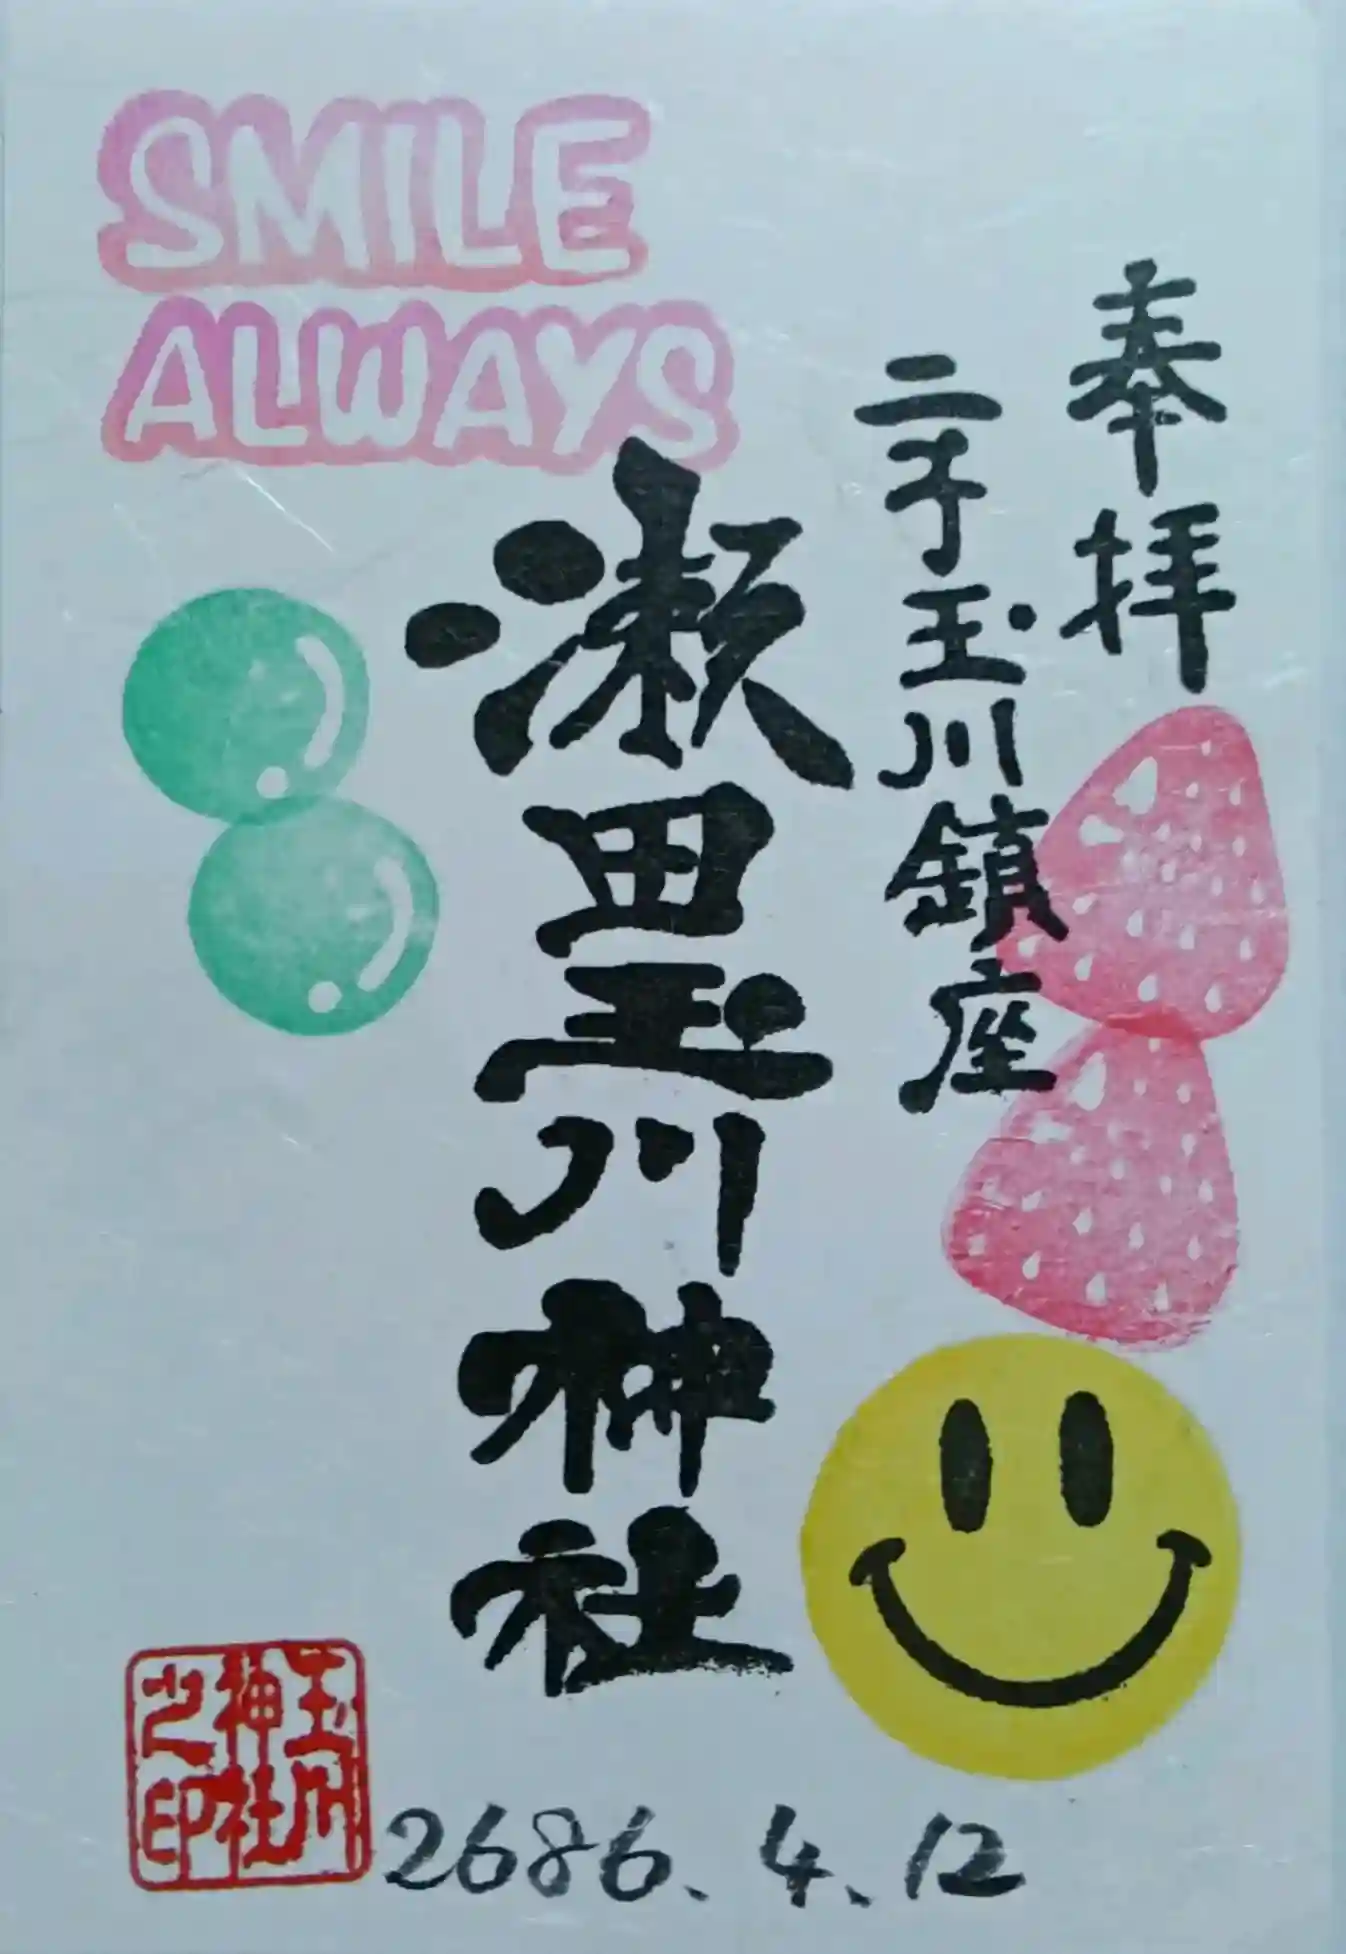 SMILE
ALWAYS
奉拝
二子玉川鎮座
瀬田玉川神社
玉川
神社
之印
2686.4.12